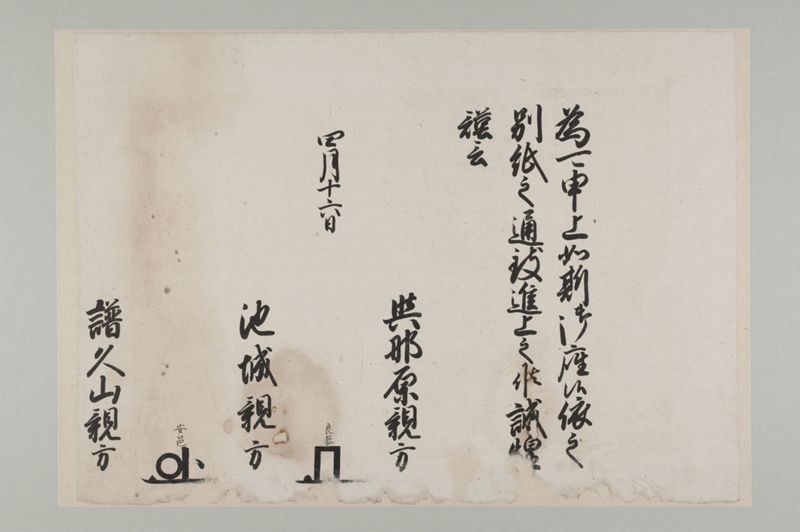 為可申上如斯御座候依之
別紙之通致進上之候誠惶
謹言
四月十六日
與那原親方
良恭
池城親方
安邑
譜久山親方